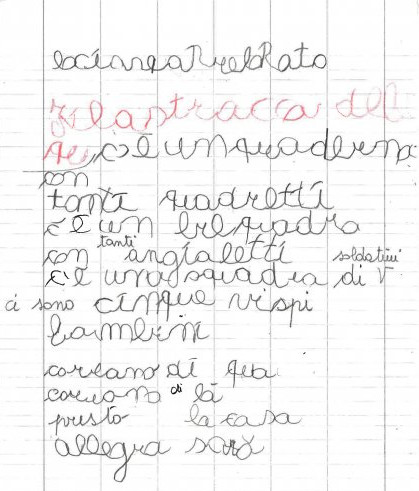 Filastrocca del
c'è un quaderno
con
tanti quadretti
c'è un bel quadro
con tanti angialetti
c'è una squadra di V soldatini
ci sono cinque vispi
bambini
coreano di qua
coreano di là
presto la casa
allegra sarà